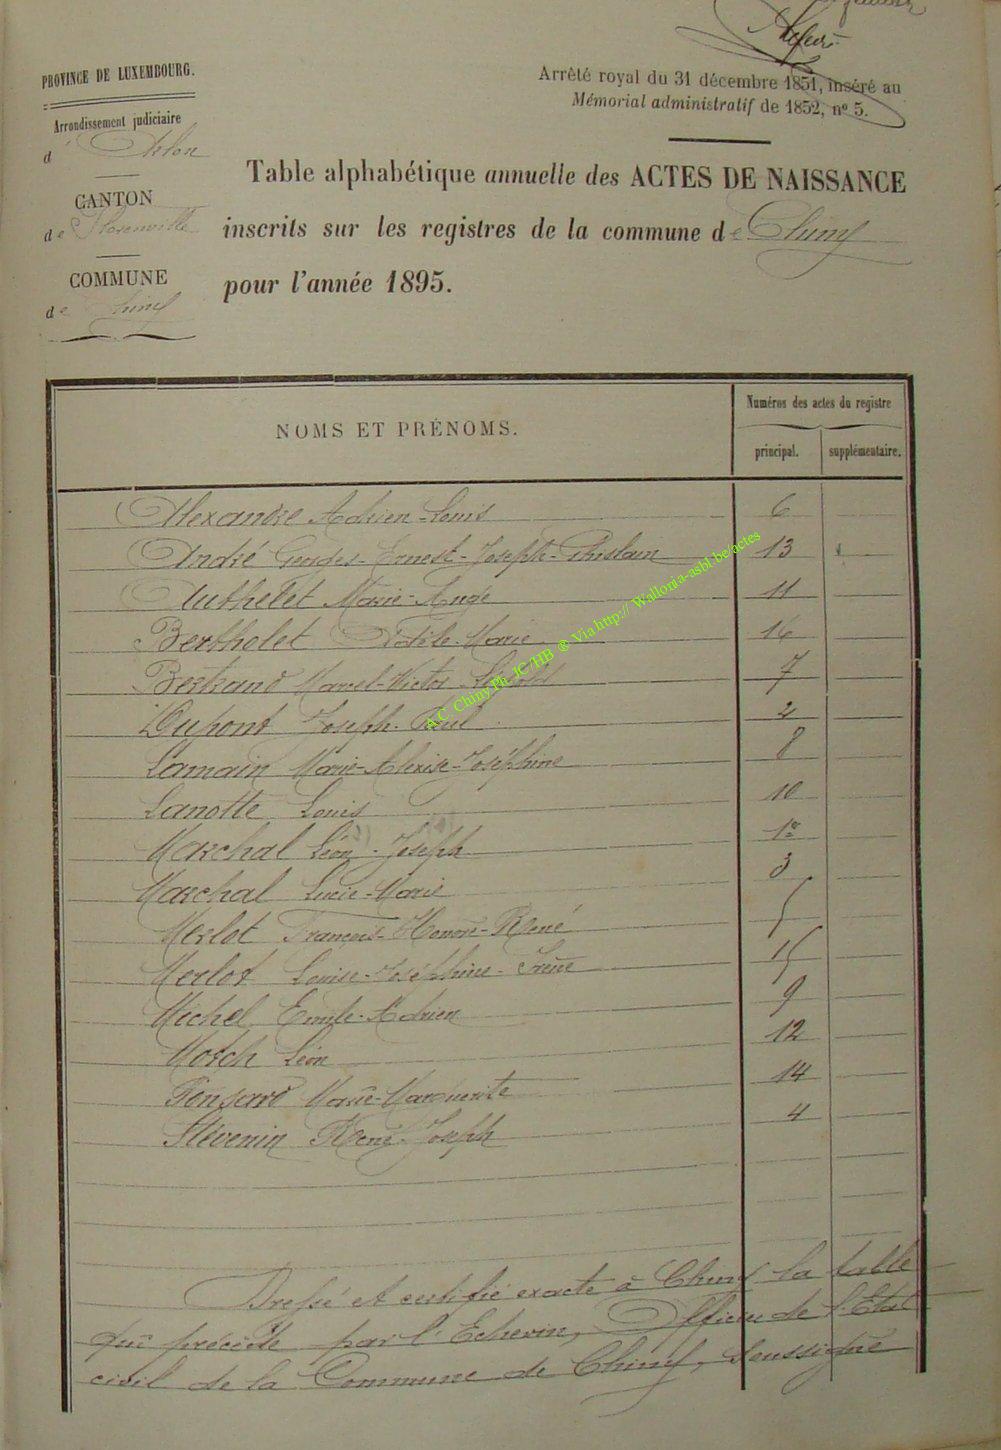 PROVINCE DE LUXEMBOURG.
Arrondissement judiciaire
d'Arlon
CANTON
de Florenville
COMMUNE
de Chiny
Arrêté royal du 31 décembre 1851, inséré au
Mémorial administratif de 1852, nº 5.
Table alphabétique annuelle des ACTES DE NAISSANCE
inscrits sur les registres de la commune de Chiny
pour l'année 1895.
NOMS ET PRÉNOMS.
Numéros des actes du registre
principal. supplémentaire.
Alexandre Adrien-Louis 6
André Georges-Ernest-Joseph-Ghislain 13
Authelet Marie-Ange 11
Bertholet Marie 16
Bertrand Marcel-Victor Léopold 7
Dupont Joseph-Paul 2
Lamain Marie-Alexise-Joséphine 8
Lanotte Louis 10
Marchal Léon-Joseph 1er
Marchal Lucie-Marie 3
Merlot François-Honoré-René 5
Merlot Louise-Joséphine-Irène 15
Michel Emile-Adrien 9
Morch Léon 12
Ponsard Marie-Marguerite 14
Stévenin René-Joseph 4
A.C. Chiny Ph. JC/HB ® Via http:// Wallonia-asbl.be/actes
Dressé et certifié exacte à Chiny la table
qui précède par l'Echevin, Officier de l'Etat
civil de la Commune de Chiny, soussigné